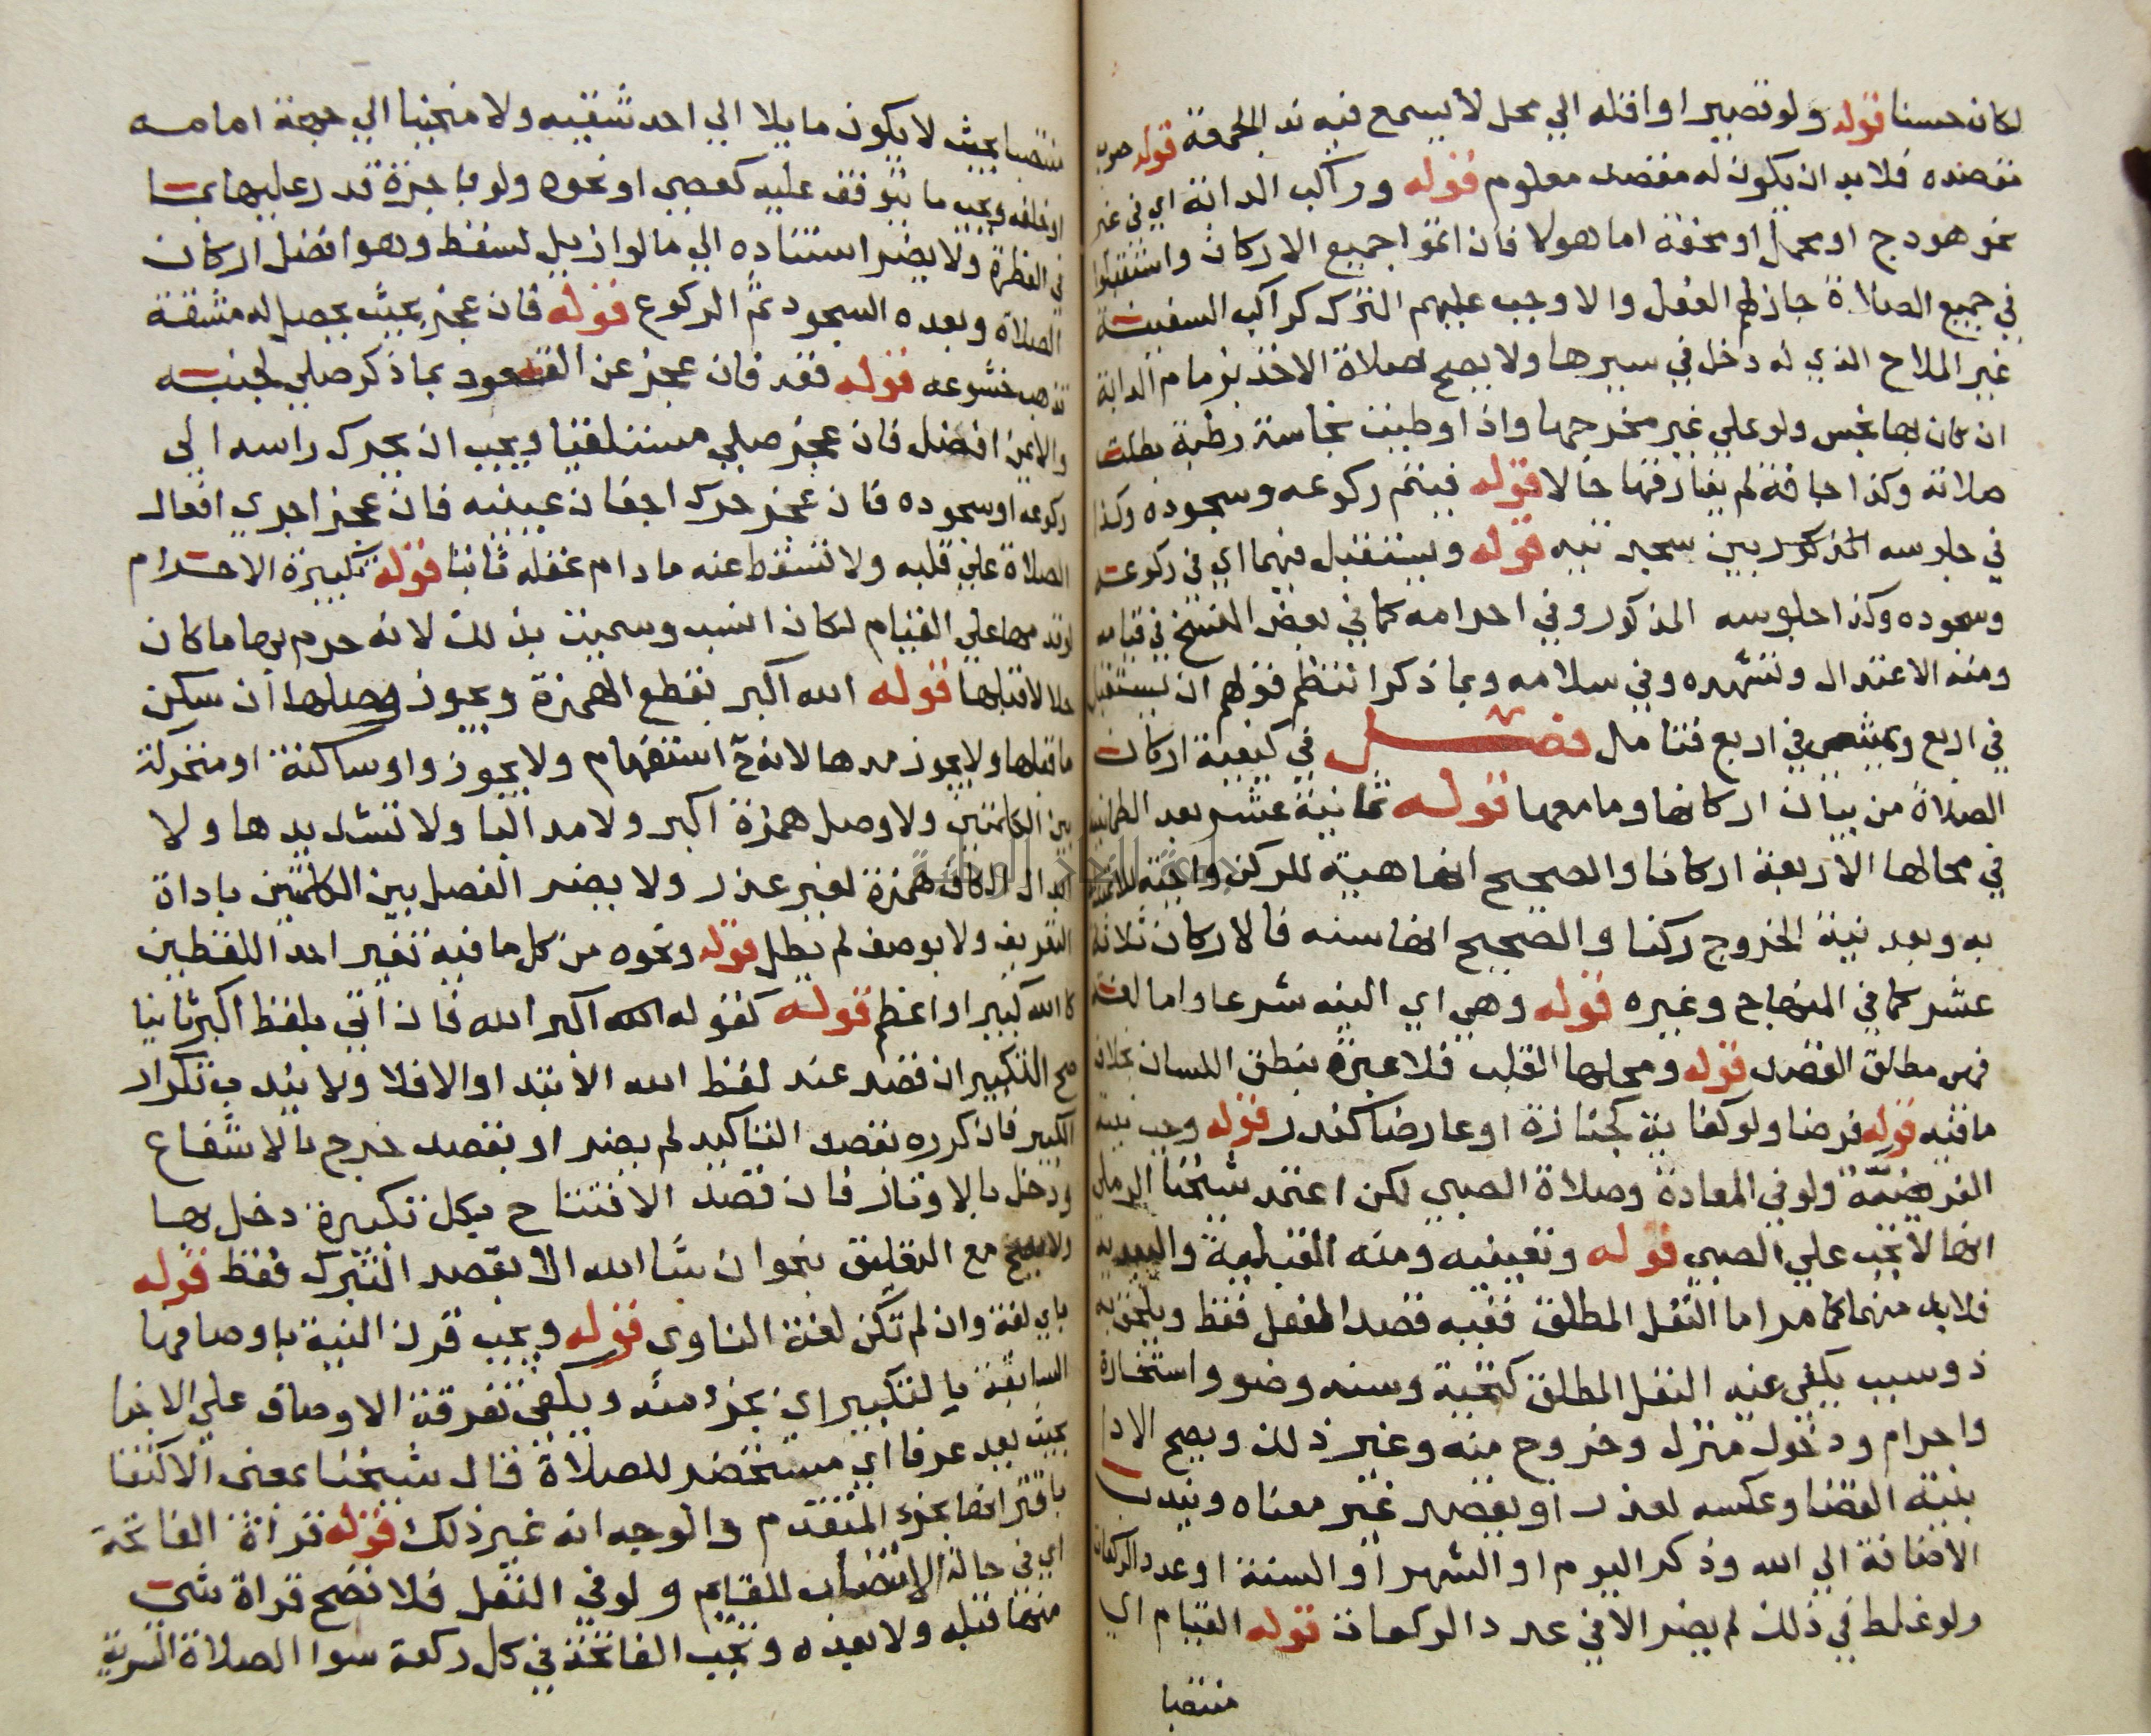 لكان حسنا قوله ولو قصيرا واقله الي محل لا يسمع فيه ند الجمعة قوله صوب
مقصده فلا بد ان يكون له مقصد معلوم قوله وراكب الدابة اي في غير
نحو هودج او محمل او محفة اما هولا فان اتموا جميع الاركان واستقبلوا
في جميع الصلاة جاز لهم الفعل والا وجب عليهم الترك كراكب السفينة
غير الملاح الذي له دخل في سيرها ولا يصح صلاة الاخذ بزمام الدابة
ان كان بها نجس ولو علي غير مخرجها واذا وطيت نجاسة رطبة بطلت
صلاته وكذا جافة لم يفارقها حالا قوله فيتم ركوعه وسجوده وكذا
في جلوسه المذكور بين سجدتيه قوله ويستقبل فيهما اي في ركوعه
وسجوده وكذا جلوسه المذكور وفي احرامه كما في بعض النسخ في قيامه
ومنه الاعتدال وتشهده وفي سلامه وبما ذكر انتظم قولهم ان يستقبل
في اربع ويمشي في اربع فتامل فصل في كيفية اركان
الصلاة من بيان اركانها وما معها قوله ثمانية عشر بعد الطمانينة
في محالها الاربعة اركانا والصحيح انها هيئة للركن واجبة للاعتداد
به وبعد نية الخروج ركنا والصحيح انها سنه فالاركان ثلاثة
عشر كما في المنهاج وغيره قوله وهي اي النيه شرعا واما لغة
فهي مطلق القصد قوله ومحلها القلب فلا عبرة بنطق اللسان بخلاف
ما فيه قوله فرضا ولو كفاية كجنازة او عارضا كنذر قوله وجب نية
الفرضية ولو في المعادة وصلاة الصبي لكن اعتمد شيخنا الرملي
انها لا تجب علي الصبي قوله وتعيينيه ومنه القبلية والبعدية
فلا بد منهما كما مر اما النفل المطلق ففيه قصد الفعل فقط ويلحق به
ذو سبب يكفي عنه النفل المطلق كتحية وسنه وضو واستخارة
واحرام ودخول منزل وخروج منه وغير ذلك ويصح الادا
بنية القضا وعكسه لعذر او بقصد غير معناه ويندب
الاضافة الي الله وذكر اليوم او الشهر او السنة او عدد الركعات
ولو غلط في ذلك لم يضر الا في عدد الركعات قوله القيام اي
منتصبا
منتصبا بحيث لا يكون مايلا الي احد شقيه ولا منحنيا الي جهة امامه
او خلفه ويجب ما يتوقف عليه كعصي او نحوه ولو باجرة قدر عليها بما
في الفطرة ولا يضر استناده الي ما لو ازيل لسقط وهو افضل اركان
الصلاة وبعده السجود ثم الركوع قوله فان عجز بحيث يحصل له مشقة
تذهب خشوعه قوله قعد فان عجز عن القعود بما ذكر صلي لجنبه
والايمن افضل فان عجز صلي مستلقيا ويجب ان يحرك راسه الي
ركوعه او سجوده فان عجز حرك اجفان عينيه فان عجز اجري افعال
الصلاة علي قلبه ولا تسقط عنه ما دام عقله ثابتا قوله تكبيرة الاحرام
لو قدمها علي القيام لكان انسب وسميت بذلك لانه حرم بها ما كان
حلالا قبلها قوله الله اكبر بقطع الهمزة ويجوز وصلها ان سكن
ما قبلها ولا يجوز مدها لانه ح استفهام ولا يجوز واو ساكنة او متحركة
بين الكلمتين ولا وصل همزة اكبر ولا مد البا ولا تشديدها ولا
ابدال الكاف همزة لغير عذر ولا يضر الفصل بين الكلمتين باداة
التعريف ولا بوصف لم يطل قوله ونحوه من كل ما فيه تغير احد اللفظين
كالله كبير او اعظم قوله كقوله الله اكبر الله فان اتي بلفظ اكبر ثانيا
صح التكبير ان قصد عند لفظ الله الابتدا والا فلا ولا يندب تكرار
التكبير فان كرره بقصد التاكيد لم يضر او بقصد خرج بالاشفاع
ودخل بالاوتار فان قصد الافتتاح بكل تكبيرة دخل بها
ولا يصح مع التعليق بنحو ان شا الله الا بقصد التبرك فقط قوله
باي لغة وان لم تكن لغة الناوي قوله ويجب قرن النية باوصافها
السابقة بالتكبير اي بجزء منه ويكفي تفرقة الاوصاف علي الاجزا
بحيث يعد عرفا اي مستحضر للصلاة قال شيخنا بمعني الاكتفا
باقترانها بجزء المتقدم والوجه انه غير ذلك قوله قراة الفاتحة
اي في حالة الانتصاب للقايم ولو في النفل فلا تصح قراة شي
منها قبله ولا بعده وتجب الفاتحة في كل ركعة سوا الصلاة السرية